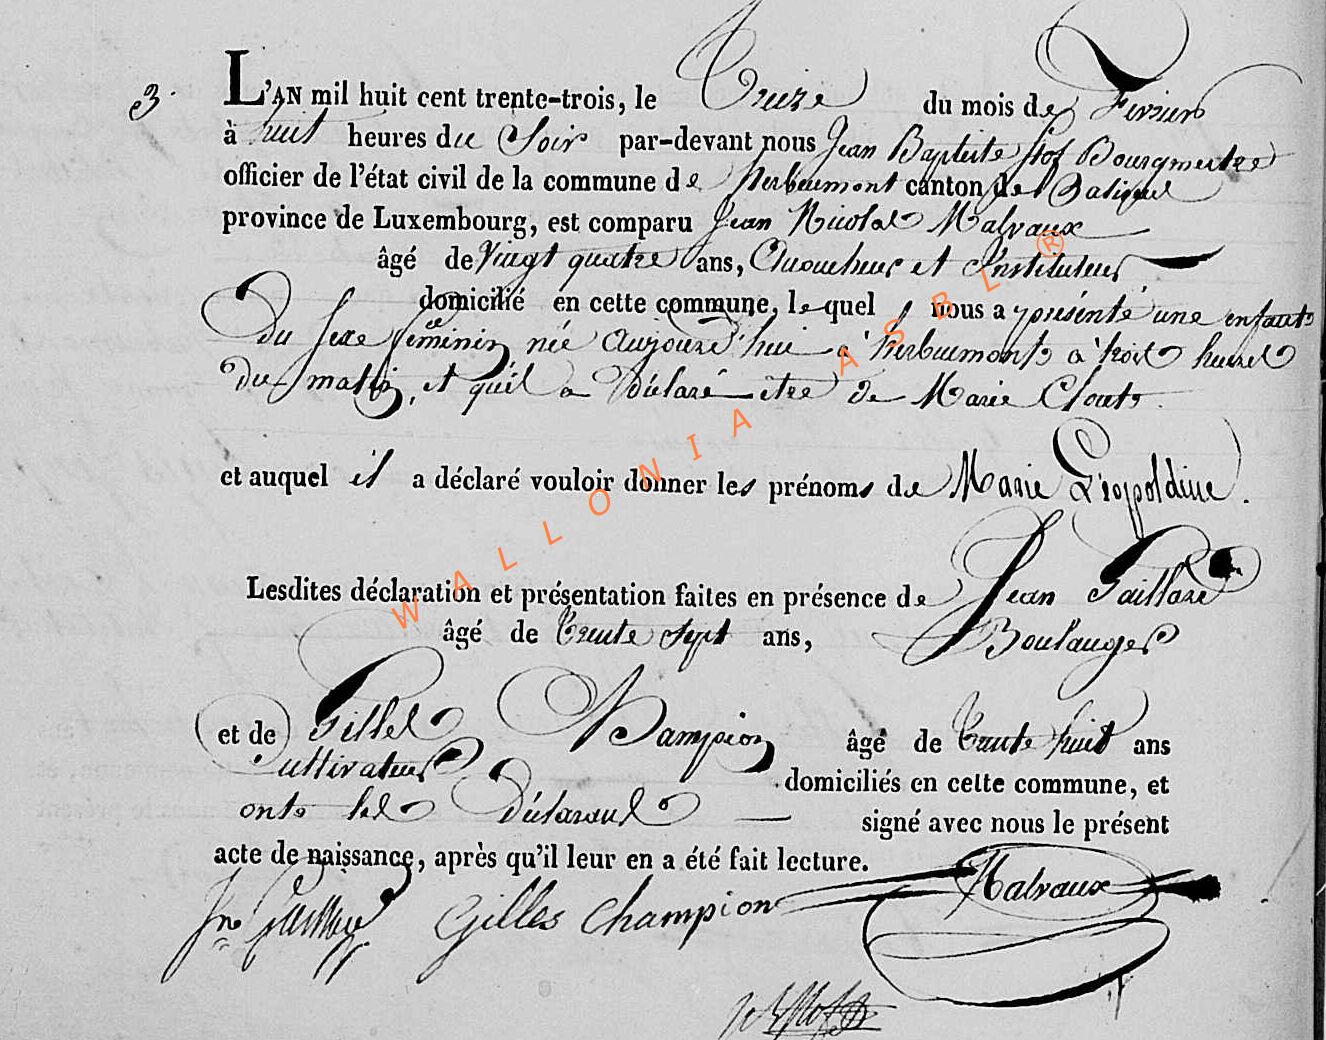 3.
L'AN mil huit cent trente-trois, le Treize du mois de Fevrier
à huit heures du Soir par-devant nous Jean Baptiste Bourgmestre
officier de l'état civil de la commune de herbeumont canton de
province de Luxembourg, est comparu Jean Nicolas Malvaux
âgé de Vingt quatre ans, et Instituteur
domicilié en cette commune, lequel nous a présenté une enfant
du sexe féminin née aujourd'hui à herbeumont à trois heures
du matin, et qu'il a déclaré être de Marie
et auquel il a déclaré vouloir donner les prénoms de Marie Léopoldine.
Lesdites déclaration et présentation faites en présence de Jean Gaillard
âgé de trente sept ans, Boulanger
et de Gilles Champion âgé de trente huit ans
Cultivateur domiciliés en cette commune, et
ont les déclarans signé avec nous le présent
acte de naissance, après qu'il leur en a été fait lecture.
Jn Gaillard Gilles Champion Malvaux
WALLONIA ASBL ®